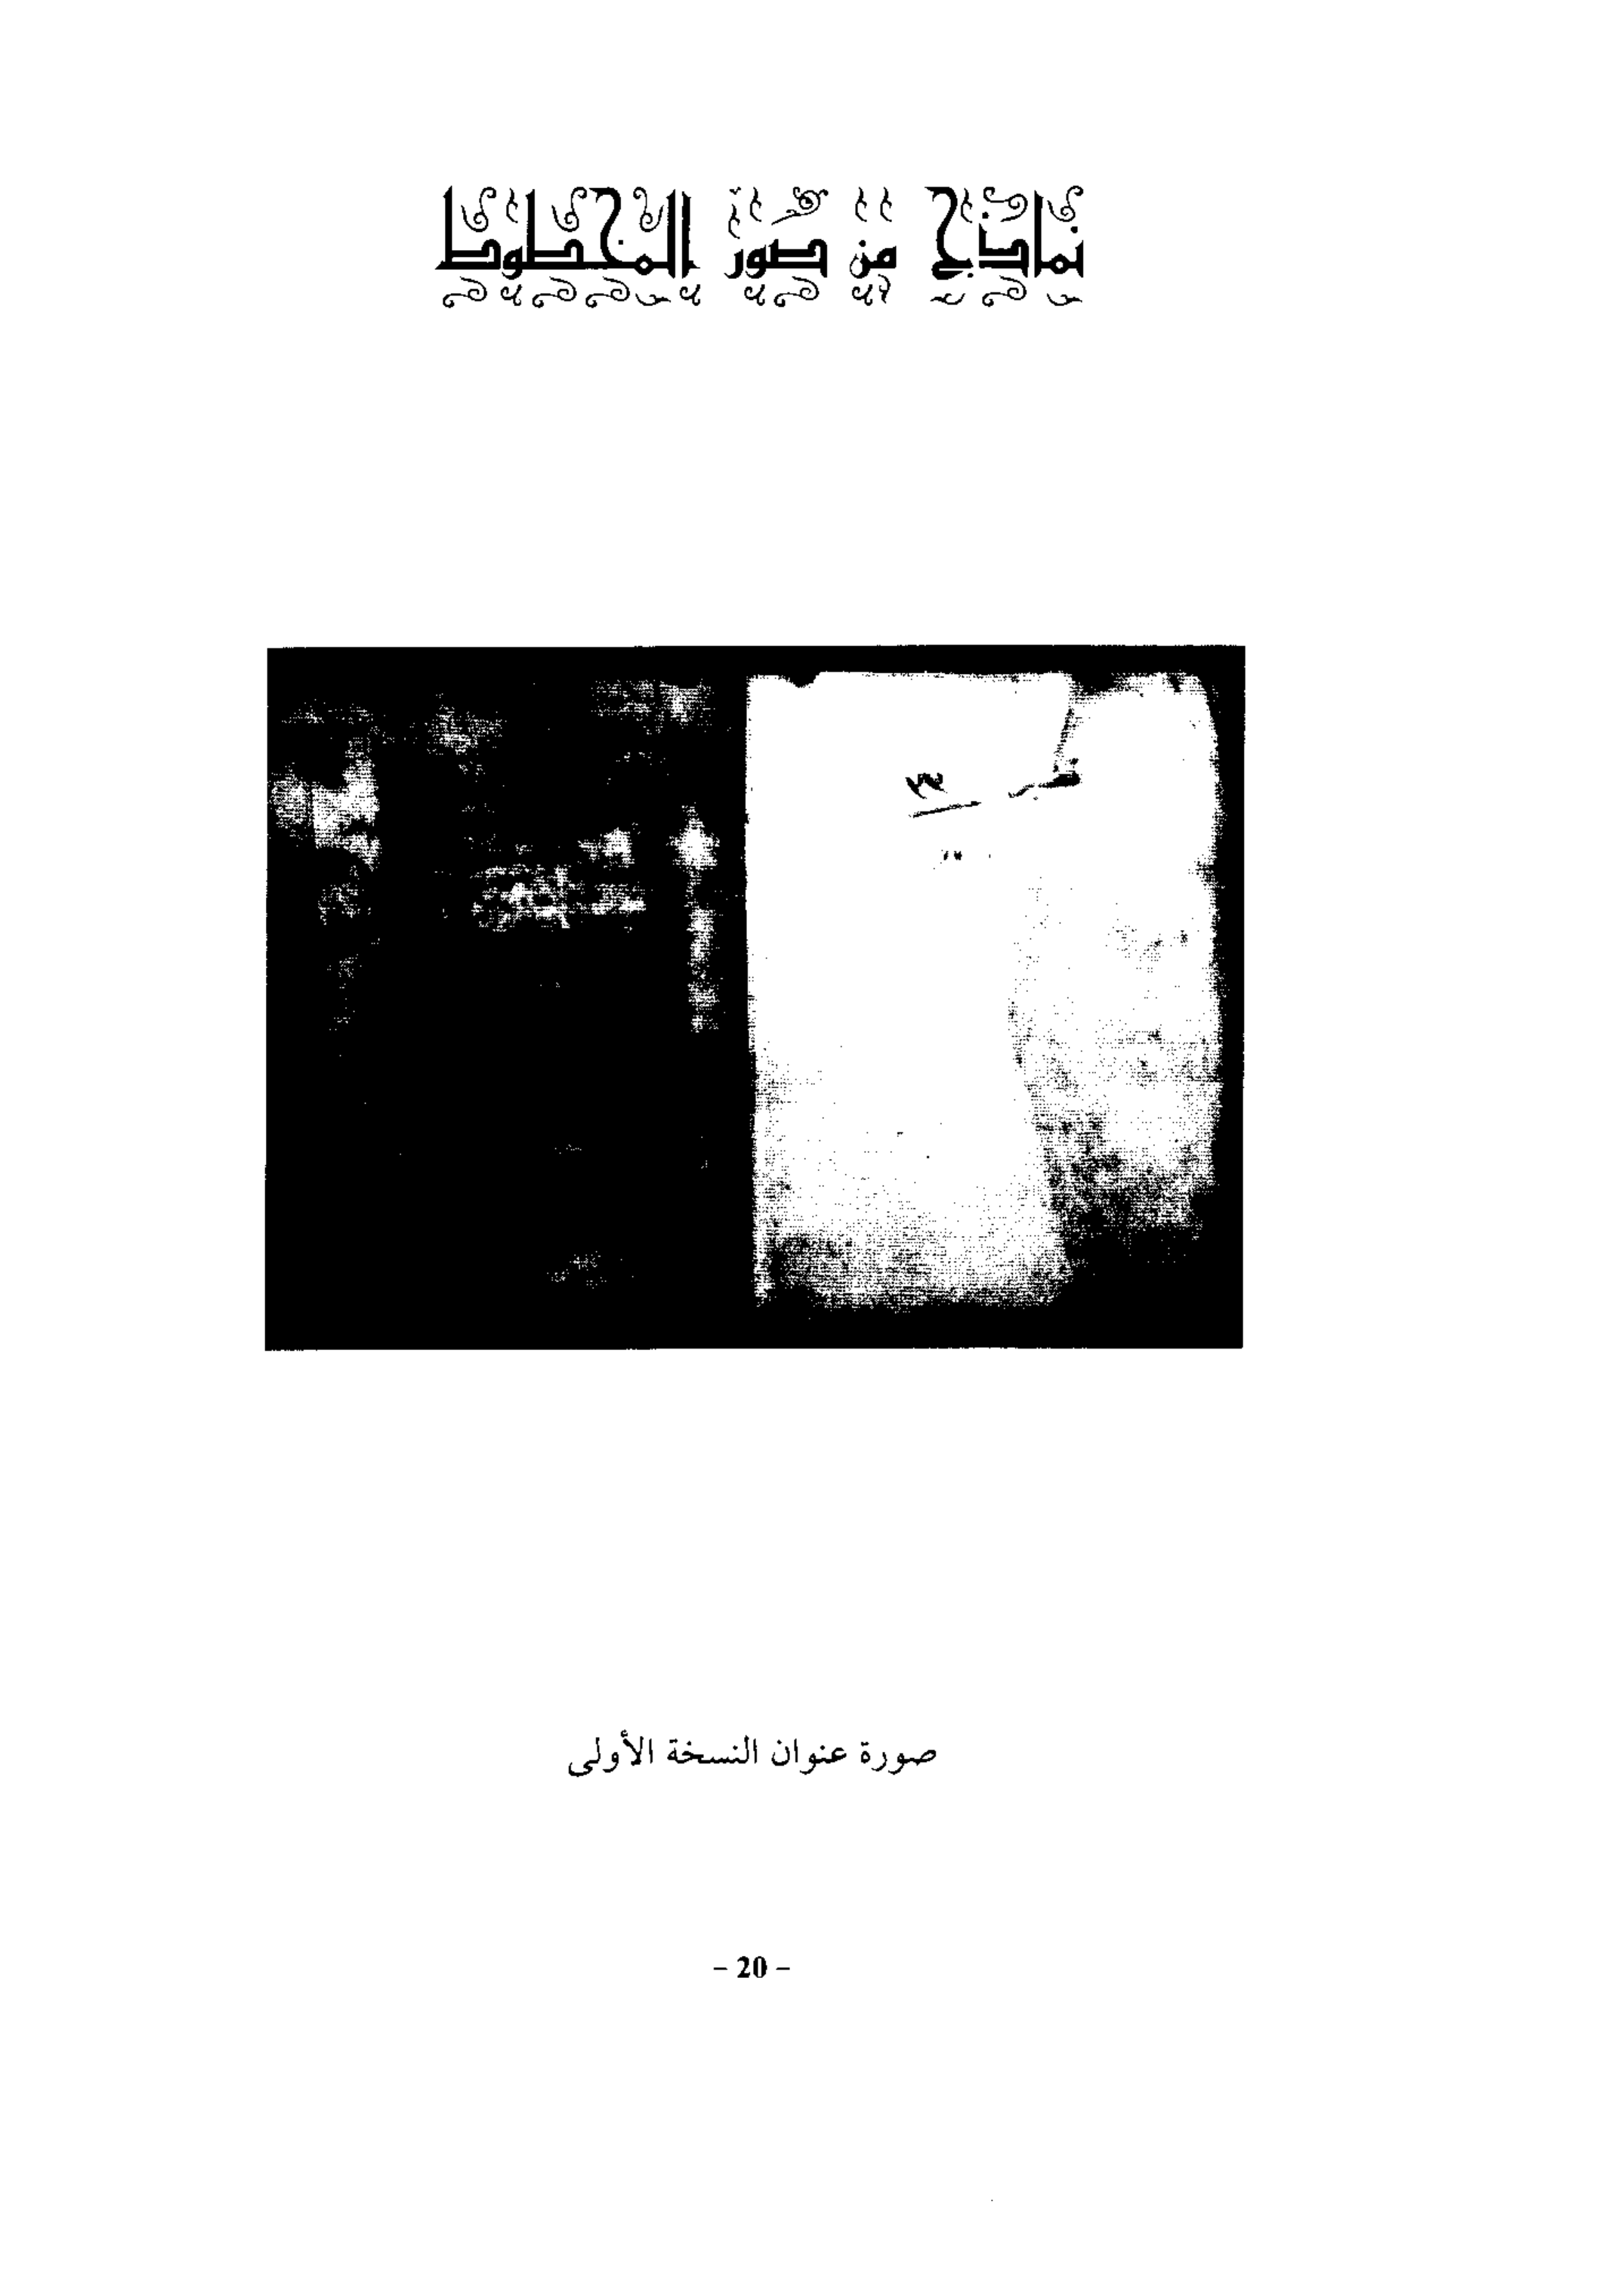 نماذج من صور المخطوط
صورة عنوان النسخة الأولى
- 20 -